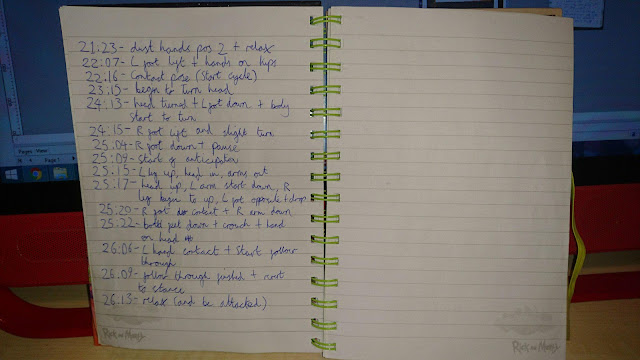 21:23 - dust hands pos 2 + relax
22:07 - L foot lift + hands on hips
22:16 - Contact pose (start cycle)
23:15 - begin to turn head
24:13 - head turned + L foot down + body
start to turn
24:15 - R foot lift and slight turn
25:04 - R foot down + pause
25:09 - Start of anticipation
25:15 - L leg up, head in, arms out
25:17 - head up, L arm start down, R
leg begin to up, L foot opposite + drop
25:20 - R foot contact + R arm down
25:22 - both feet down + crouch + hand
on head
26:06 - L hand contact + start follow
through
26:09 - follow through finished +
to stance
26:13 - relax (and be attacked)
Rick and Morty
Rick and Morty
Page 1